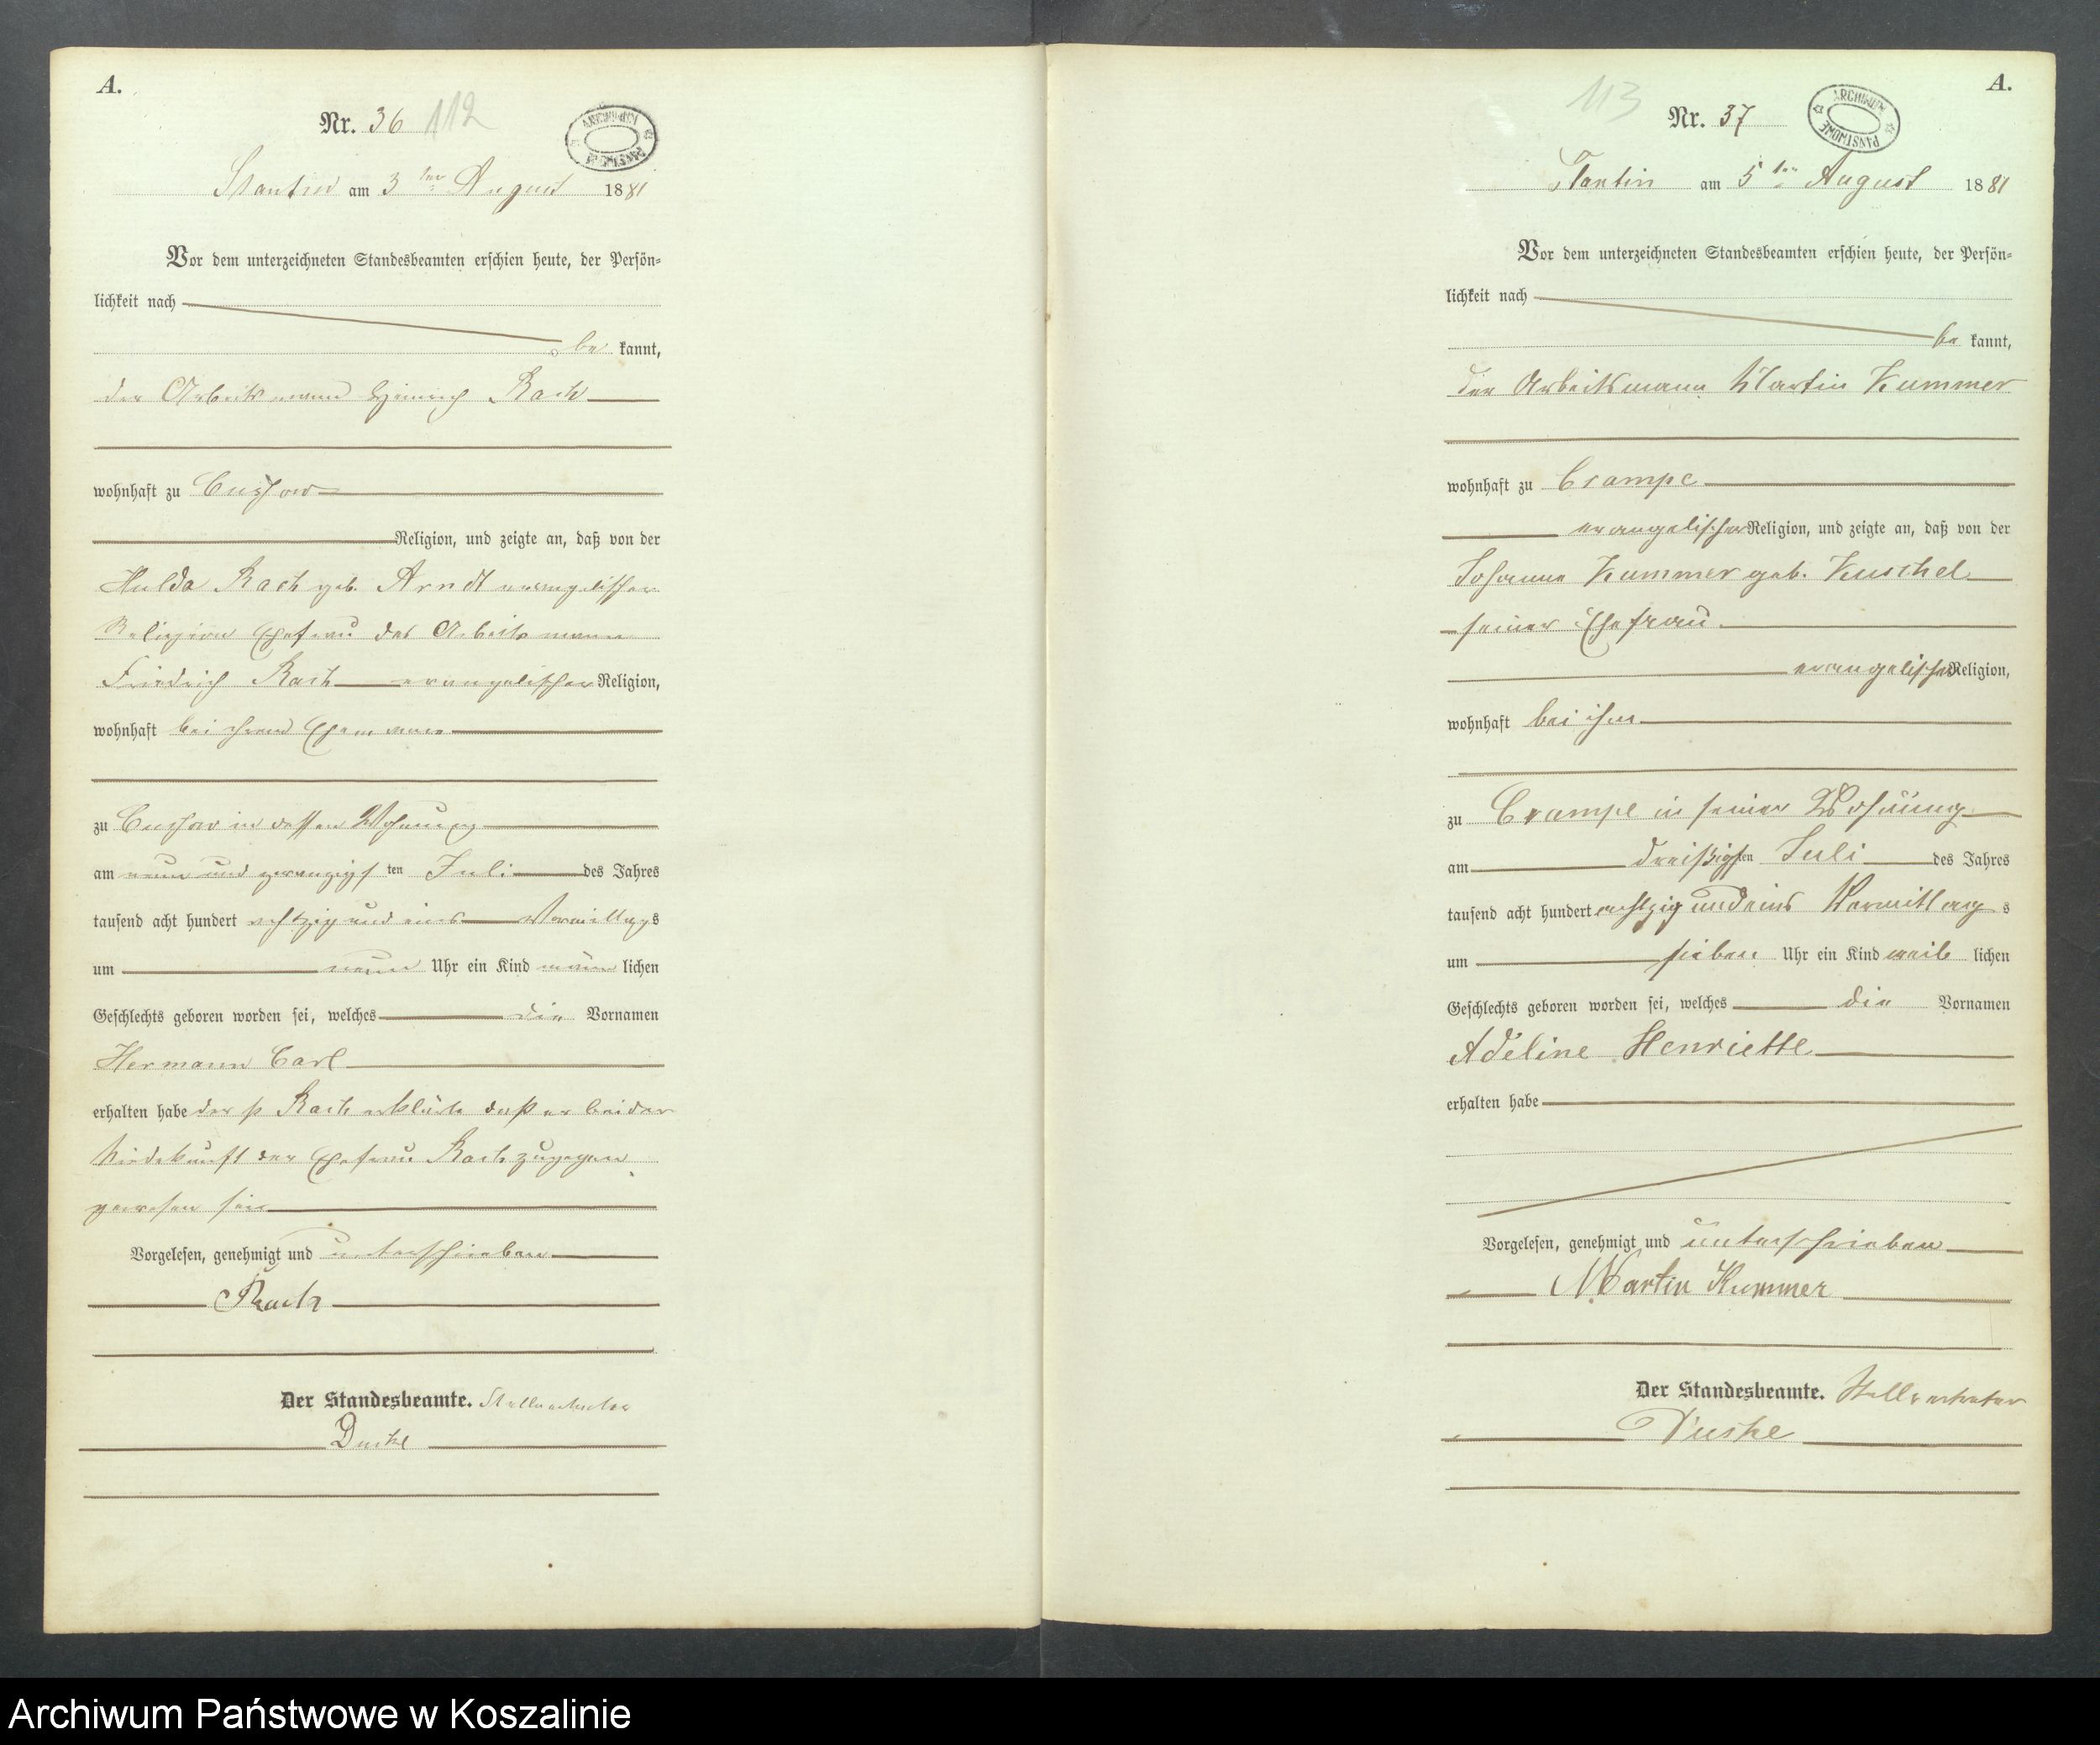 A.
Nr. 36 112
ARCHIWUM PAŃSTWOWE
am 3ten August 1881
Vor dem unterzeichneten Standesbeamten erschien heute, der Persön-
lichkeit nach
be kannt,
der Arbeitsmann Heinrich Rach
wohnhaft zu
Religion, und zeigte an, daß von der
Hulda Rach geb. Arndt evangelischer
Religion Ehefrau des Arbeitsmann
Friedrich Rach evangelischer Religion,
wohnhaft bei ihrem Ehemann
zu in dessen Wohnung
am neun und zwanzigs ten Juli des Jahres
tausend acht hundert achtzig und eins Vormittags
um neun Uhr ein Kind männ lichen
Geschlechts geboren worden sei, welches die Vornamen
Hermann Carl
erhalten habe der p Rach erklärte daß er bei der
Niederkunft der Ehefrau Rach zugegen
gewesen sei
Vorgelesen, genehmigt und unterschrieben
Rach
Der Standesbeamte. Stellvertreter
A.
113 Nr. 37
ARCHIWUM PAŃSTWOWE
am 5ten August 1881
Vor dem unterzeichneten Standesbeamten erschien heute, der Persön-
lichkeit nach
be kannt,
der Arbeitsmann Martin Kummer
wohnhaft zu Crampe
evangelischer Religion, und zeigte an, daß von der
Johanne Kummer geb. Kuschel
seiner Ehefrau
evangelischer Religion,
wohnhaft bei ihm
zu Crampe in seiner Wohnung
am dreißigsten Juli des Jahres
tausend acht hundert achtzig und eins Vormittags
um sieben Uhr ein Kind weib lichen
Geschlechts geboren worden sei, welches die Vornamen
Adeline Henriette
erhalten habe
Vorgelesen, genehmigt und unterschrieben
Martin Kummer
Der Standesbeamte. Stellvertreter
Archiwum Państwowe w Koszalinie